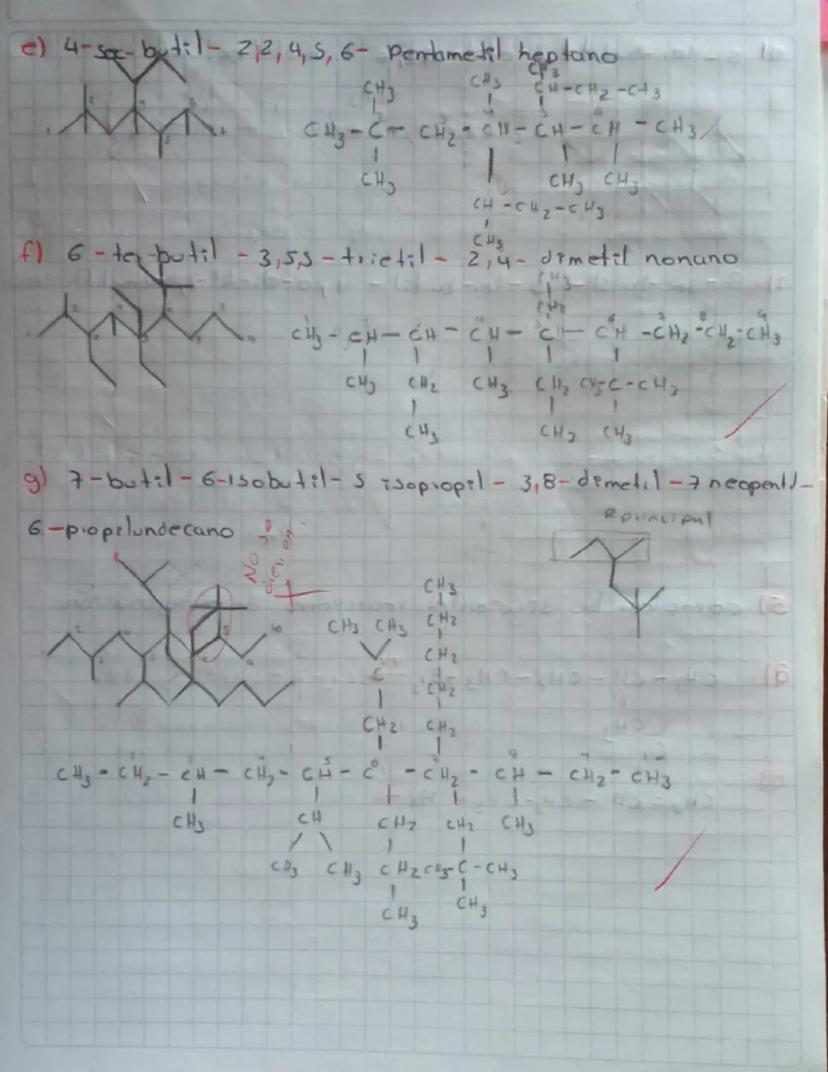 e) 4-sec-butil- 2,2,4,5,6- Pentametil heptano
CH3 CH3 CH-CH2-CH3
CH3-C- CH2- CH-CH-CH-CH3
CH3 CH3 CH3
CH-CH2-CH3
CH3
f) 6-ter-butil - 3,5,5-trietil- 2,4- dimetil nonano
CH3
CH2
CH3- CH- CH- CH- C- CH -CH2-CH2-CH3
CH3 CH2 CH3 CH2 CH3-C-CH3
CH3 CH3 CH3
g) 7-butil-6-isobutil-5 isopropil- 3,8-dimetil-7 neopentil-
principal
6-propilundecano
CH3
CH3 CH3 CH2
CH2
C CH2
CH2 CH2
CH3-CH2-CH- CH2- CH- C -CH2- CH- CH2-CH3
CH3 CH CH2 CH2 CH3
CH3 CH3 CH2 CH3-C-CH3
CH3 CH3